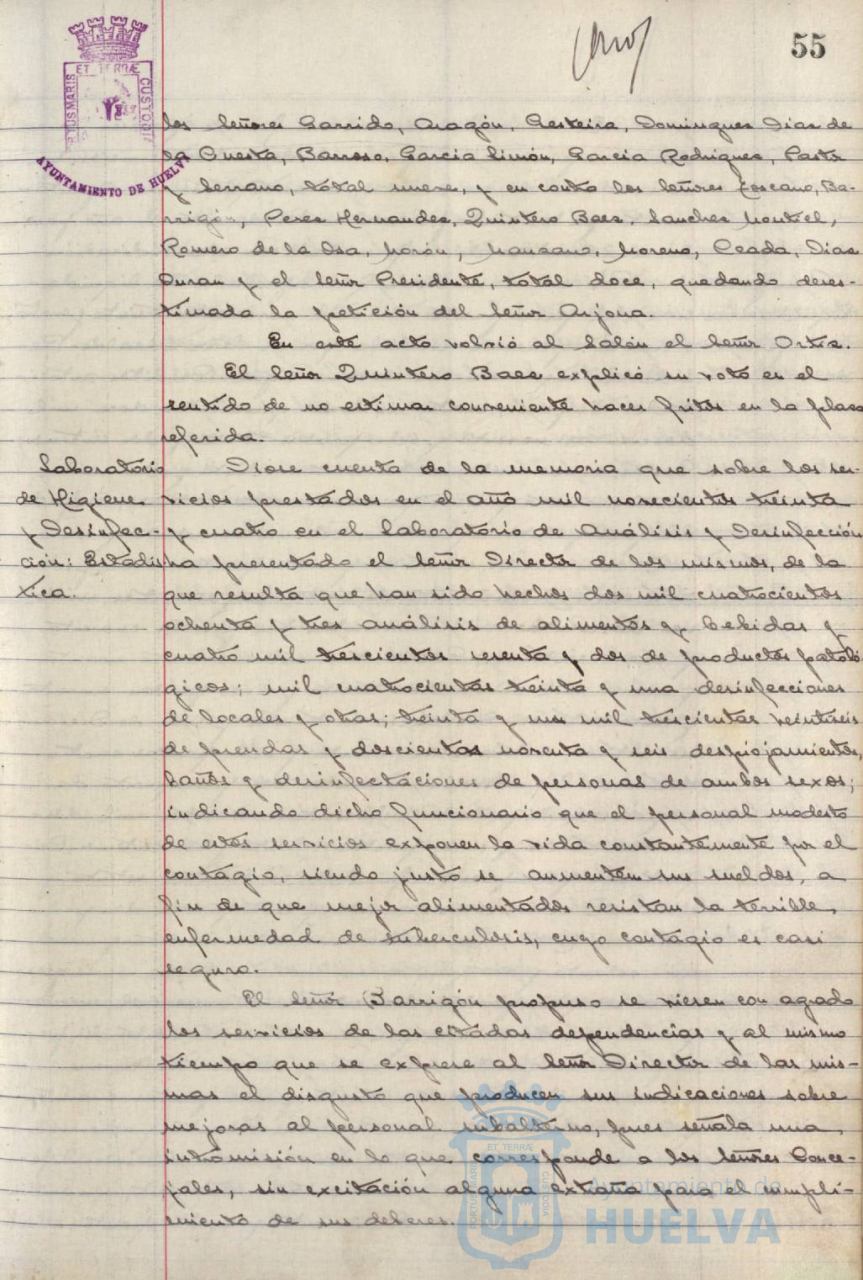 55
PORTUS MARIS ET TERRÆ CUSTODIA
AYUNTAMIENTO DE HUELVA
los señores Garrido, Aragón, Gesteira, Dominguez Diaz de
la Cuesta, Barroso, Garcia Limón, Garcia Rodriguez, Pastor
y Serrano, total nueve, y en contra los señores Toscano, Ba-
rrigón, Perez Hernandez, Quintero Baez, Sanchez Montiel,
Romero de la Osa, Morón, Manzano, Moreno, Ceada, Diaz
Duran y el señor Presidente, total doce, quedando deses-
timada la petición del señor Arjona.
En este acto volvió al Salón el señor Ortiz.
El señor Quintero Baez explicó su voto en el
sentido de no estimar conveniente hacer fritos en la plaza
referida.
Laboratorio
de Higiene
y Desinfec-
ción: Estadis
tica.
Diose cuenta de la memoria que sobre los ser-
vicios prestados en el año mil novecientos treinta
y cuatro en el Laboratorio de Análisis y Desinfección
ha presentado el señor Director de los mismos, de la
que resulta que han sido hechos dos mil cuatrocientos
ochenta y tres análisis de alimentos y bebidas y
cuatro mil trescientos sesenta y dos de productos patoló
gicos; mil cuatrocientas treinta y una desinfecciones
de locales y otras; treinta y un mil trescientas veintiseis
de prendas y doscientas noventa y seis despiojamientos,
baños y desinfectaciones de personas de ambos sexos;
indicando dicho funcionario que el personal modesto
de estos servicios exponen la vida constantemente por el
contagio, siendo justo se aumenten sus sueldos, a
fin de que mejor alimentados resistan la terrible
enfermedad de tuberculosis, cuyo contagio es casi
seguro.
El señor Barrigón propuso se viesen con agrado
los servicios de las citadas dependencias y al mismo
tiempo que se exprese al señor Director de las mis-
mas el disgusto que producen sus indicaciones sobre
mejoras al personal subalterno, pues señala una
intromisión en lo que corresponde a los señores Conce-
jales, sin excitación alguna extraña para el cumpli-
miento de sus deberes.
Ayuntamiento de
HUELVA